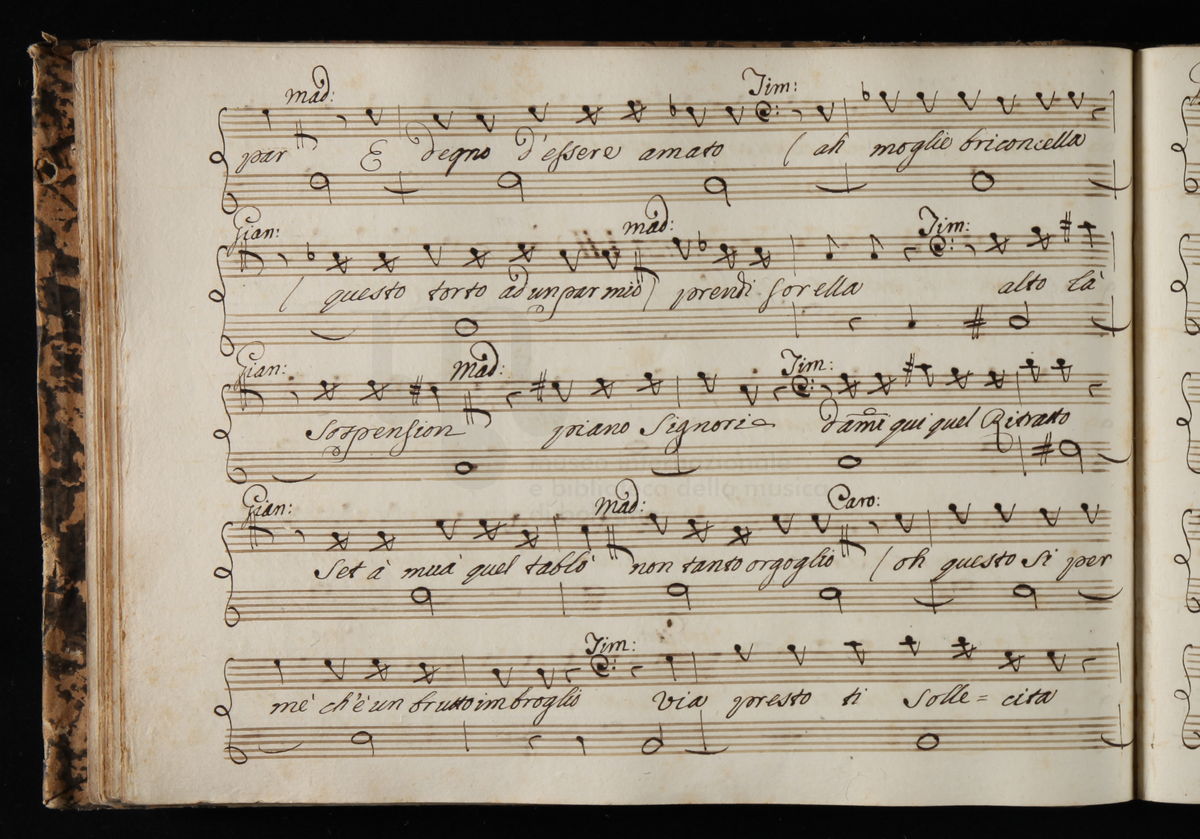 mad: Tim:
par E degno d'essere amato ( ah moglie briconcella
Gian: mad: Tim:
( questo torto ad un par mio ) prendi sorella alto là
Gian: Mad: Tim:
Sospension piano Signoria dami qui quel Ritratto
Gian: mad: Caro:
Set à muà quel tablò non tanto orgoglio ( oh questo si per
mè ch'è un brutto imbroglio
Tim:
via presto ti solle = cita
e biblioteca della musica